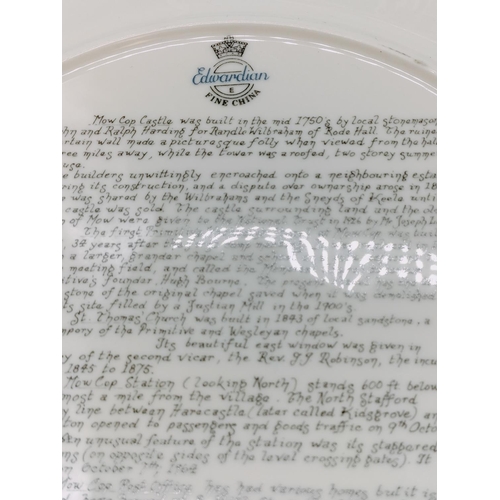 Edwardian
E
FINE CHINA
Mow Cop Castle was built in the mid 1750's by local stonemason
hn and Ralph Harding for Randle Wilbraham of Rode Hall. The ruine
rtain wall made a picturesque folly when viewed from the hall
ree miles away, while the tower was a roofed, two storey summer
use.
e builders unwittingly encroached onto a neighbouring esta
ring its construction, and a dispute over ownership arose in 18
was shared by the Wilbrahams and the Sneyds of Keele until
castle was sold. The castle surrounding land and the old
of Mow were given to the by Mr Joseph L
The first Primi
34 years after t
a larger, grander chapel and
meeting field, and called the
itive's founder, Hugh Bourne. The present
stone of the original chapel, saved when it was demolished
s site filled by a Fustian Mill in the 1900's.
St. Thomas' Church was built in 1843 of local sandstone, a
mpory of the Primitive and Wesleyan chapels.
Its beautiful east window was given in
y of the second vicar, the Rev. J.J Robinson, the incu
1845 to 1875.
Mow Cop Station (looking North) stands 600 ft below
most a mile from the village. The North Stafford
y line between Harecastle (later called Kidsgrove) an
ton opened to passengers and goods traffic on 9th Octo
An unusual feature of the station was its stapped
ns (on opposite sides of the level crossing gates). It
n October 7th 1964
Mow Cop Post Office has had various homes but it is